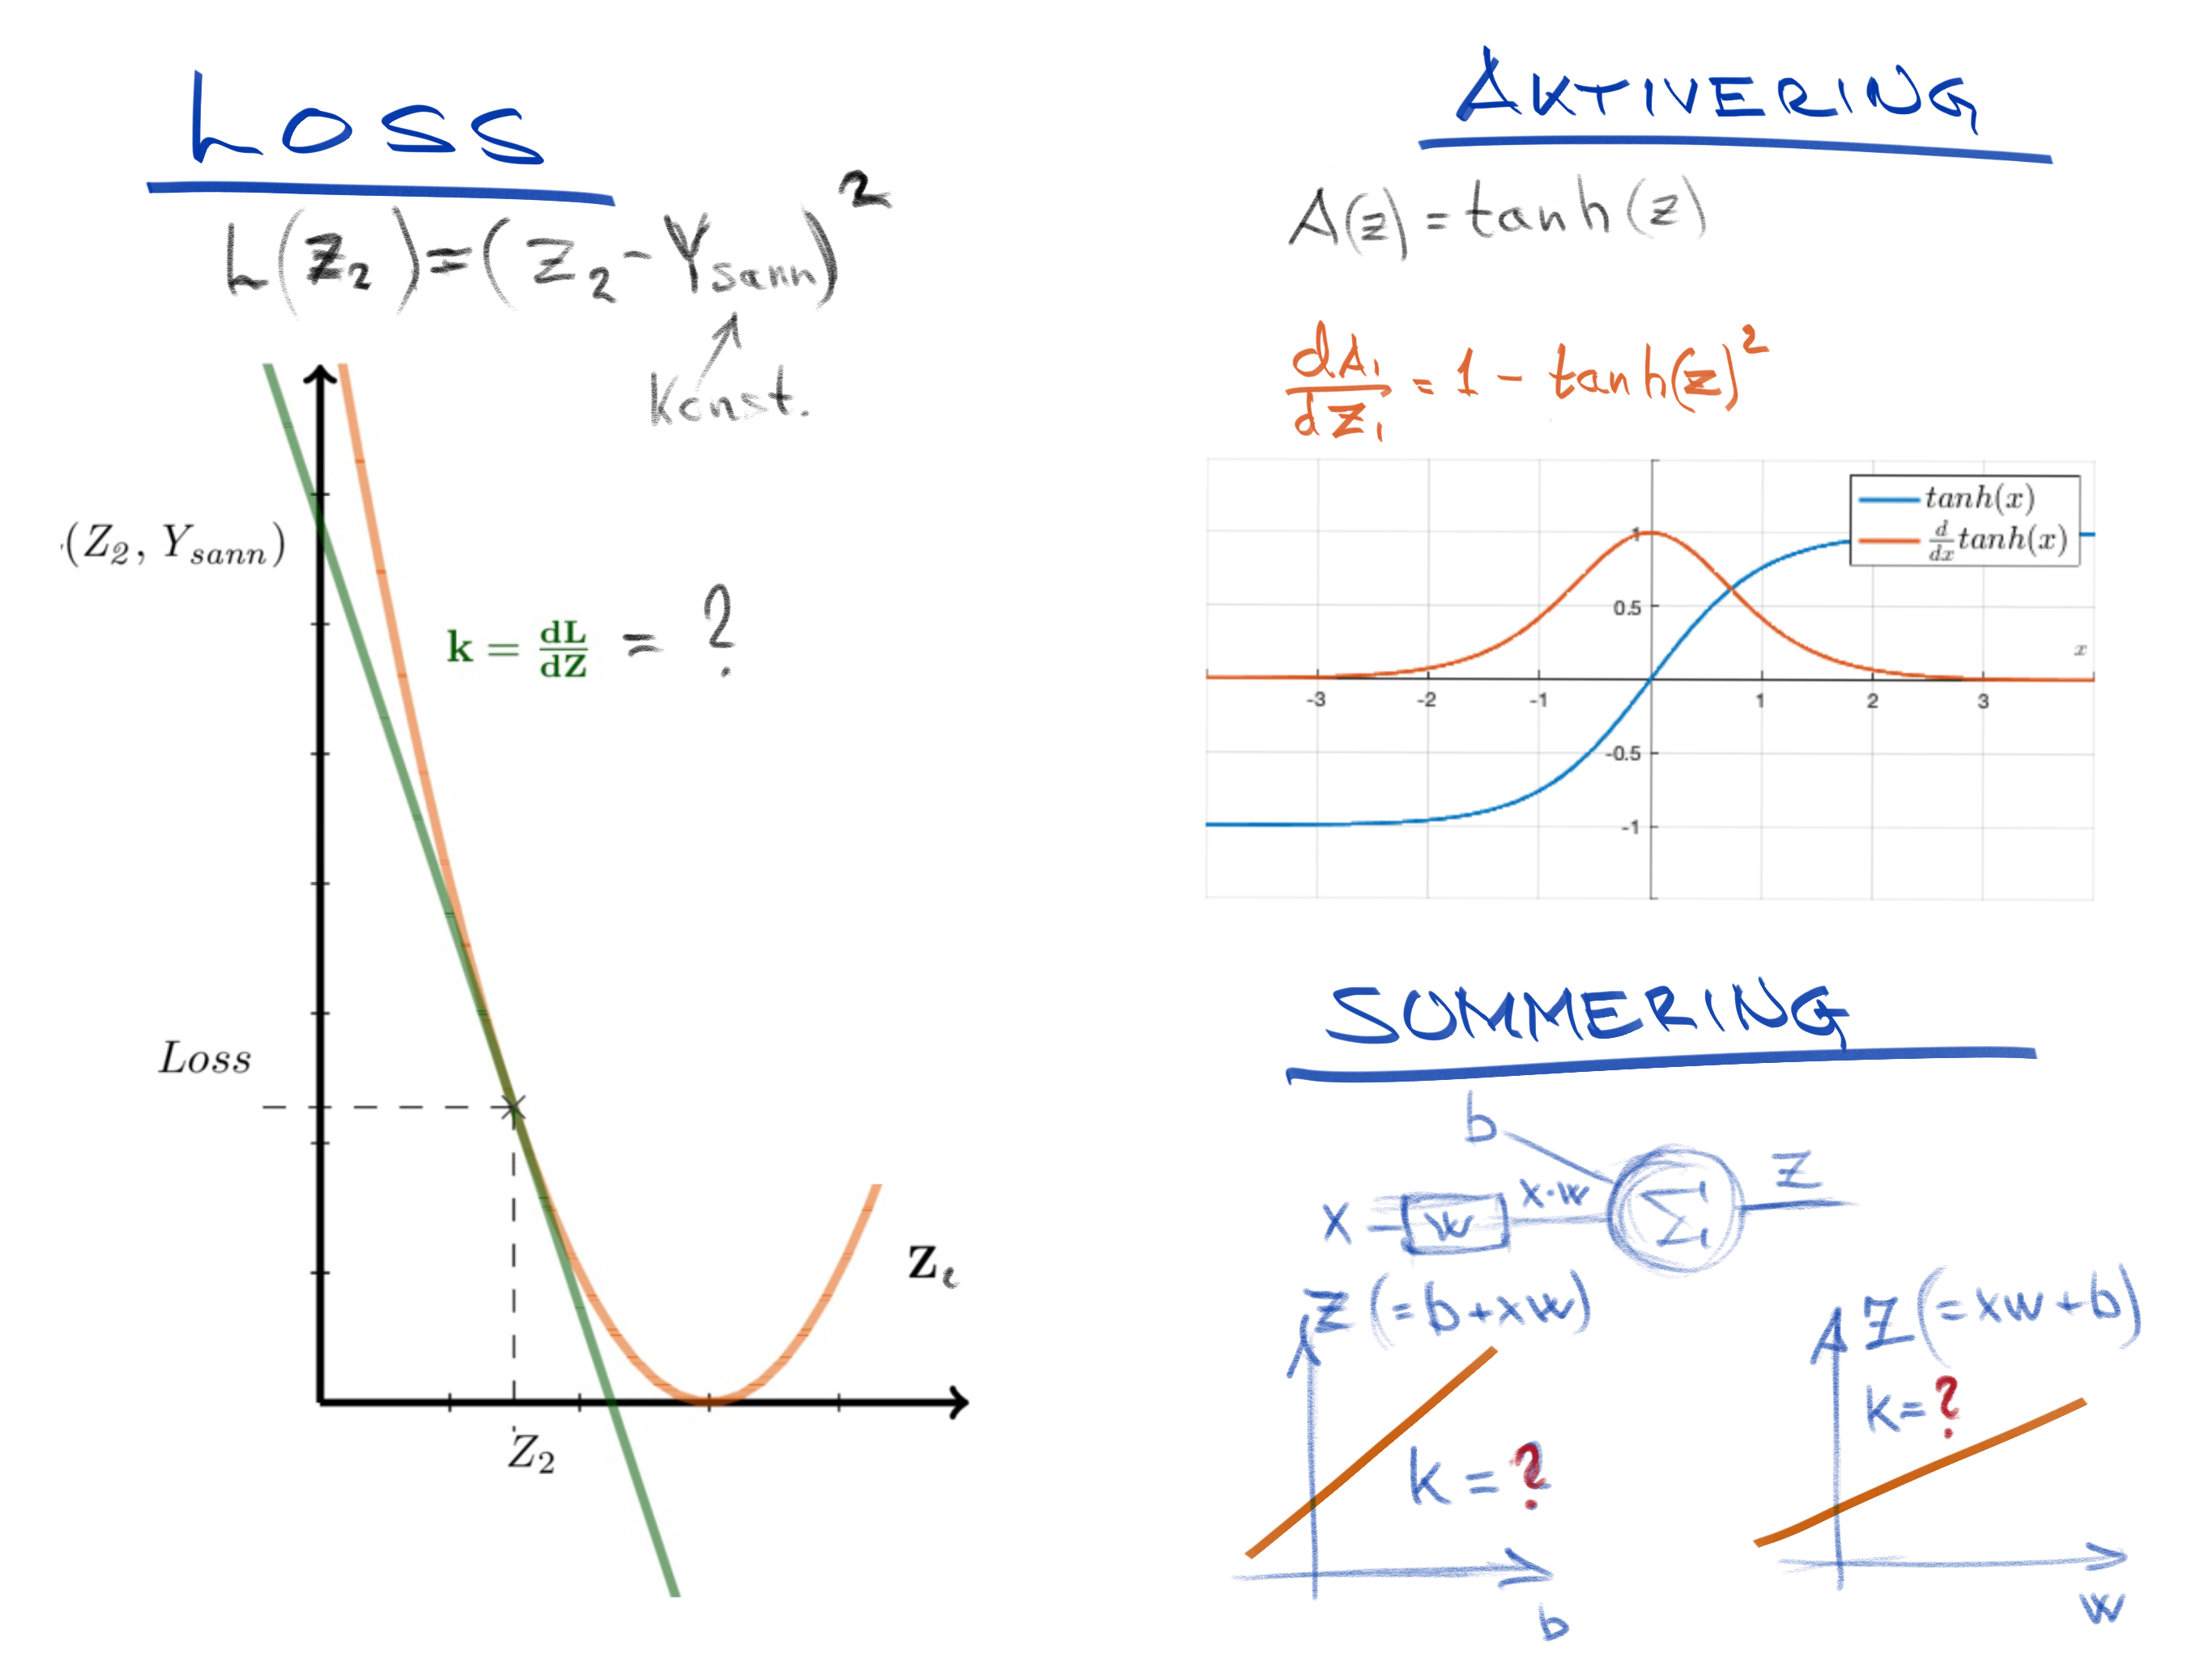 LOSS
L(Z₂)=(Z₂-Ysann)²
Konst.
(Z₂, Ysann)
k = dL/dZ = ?
Loss
Z₂
AKTIVERING
A(z) = tanh(z)
dA₁/dZ₁ = 1 - tanh(z)²
tanh(x)
d/dx tanh(x)
1
0.5
x
-3 -2 -1 1 2 3
-0.5
-1
SUMMERING
b
x w x·w Σ z
Z (=b+xw)
k = ?
b
Z (=xw+b)
k= ?
w